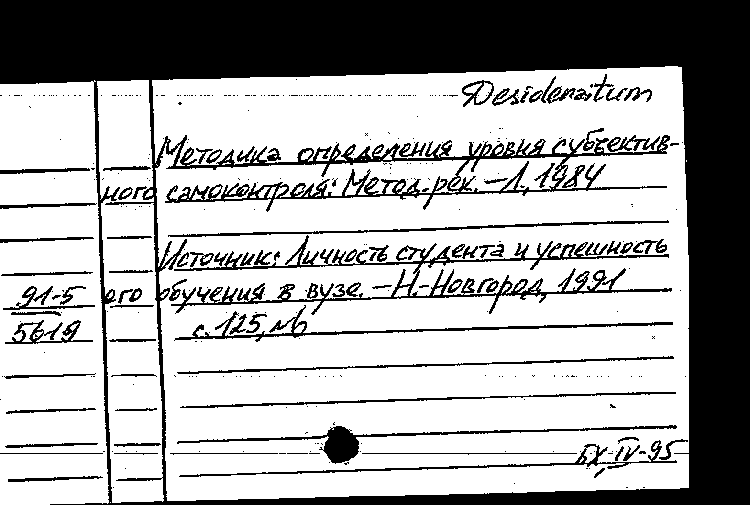 Desideratum
Методика определения уровня субъектив-
ного самоконтроля: Метод. рек. – Л., 1984
Источник: Личность студента и успешность
91-5 ого обучения в вузе. – Н.-Новгород, 1991
5619 с. 125, №
БХ IV-95